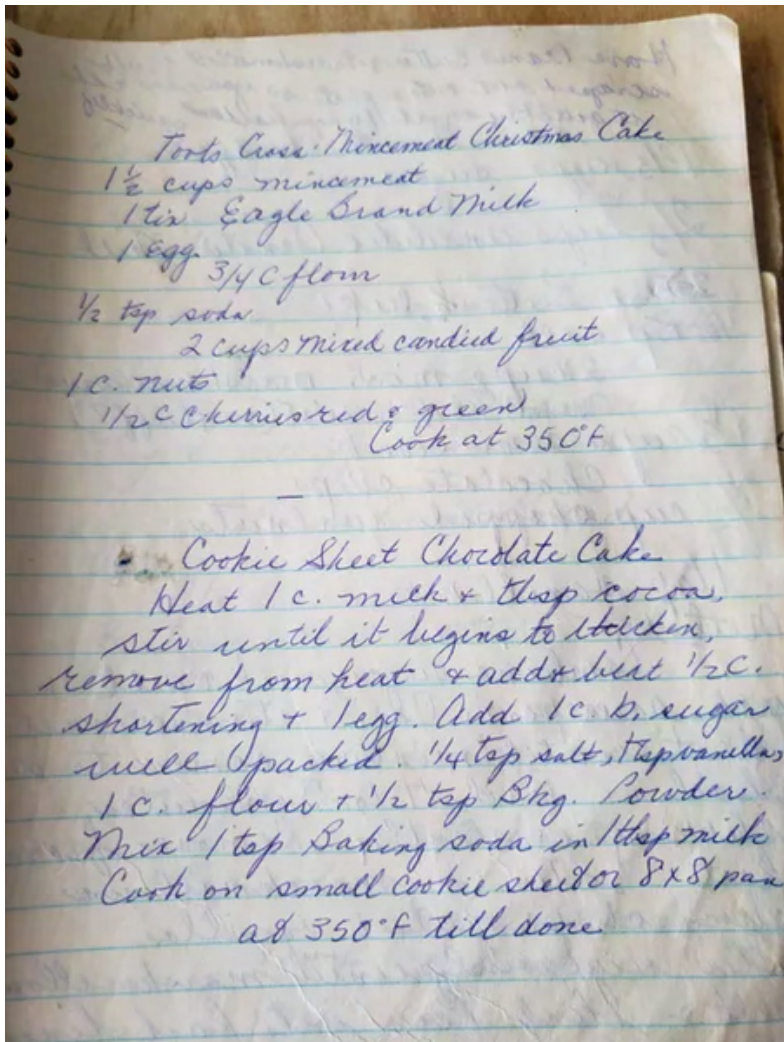 Toots Cross Mincemeat Christmas Cake
1 1/2 cups mincemeat
1 tin Eagle Brand Milk
1 Egg
3/4 C flour
1/2 tsp soda
2 cups mixed candied fruit
1 c. nuts
1/2 c cherries red & green
Cook at 350°F
—
Cookie Sheet Chocolate Cake
Heat 1 c. milk & tbsp cocoa,
stir until it begins to thicken,
remove from heat & add & beat 1/2 c.
shortening + 1 egg. Add 1 c. b. sugar
well packed. 1/4 tsp salt, 1 tsp vanilla,
1 c. flour + 1/2 tsp Bkg. Powder.
Mix 1 tsp Baking soda in 1 tbsp milk
Cook on small cookie sheet or 8x8 pan
at 350°F till done